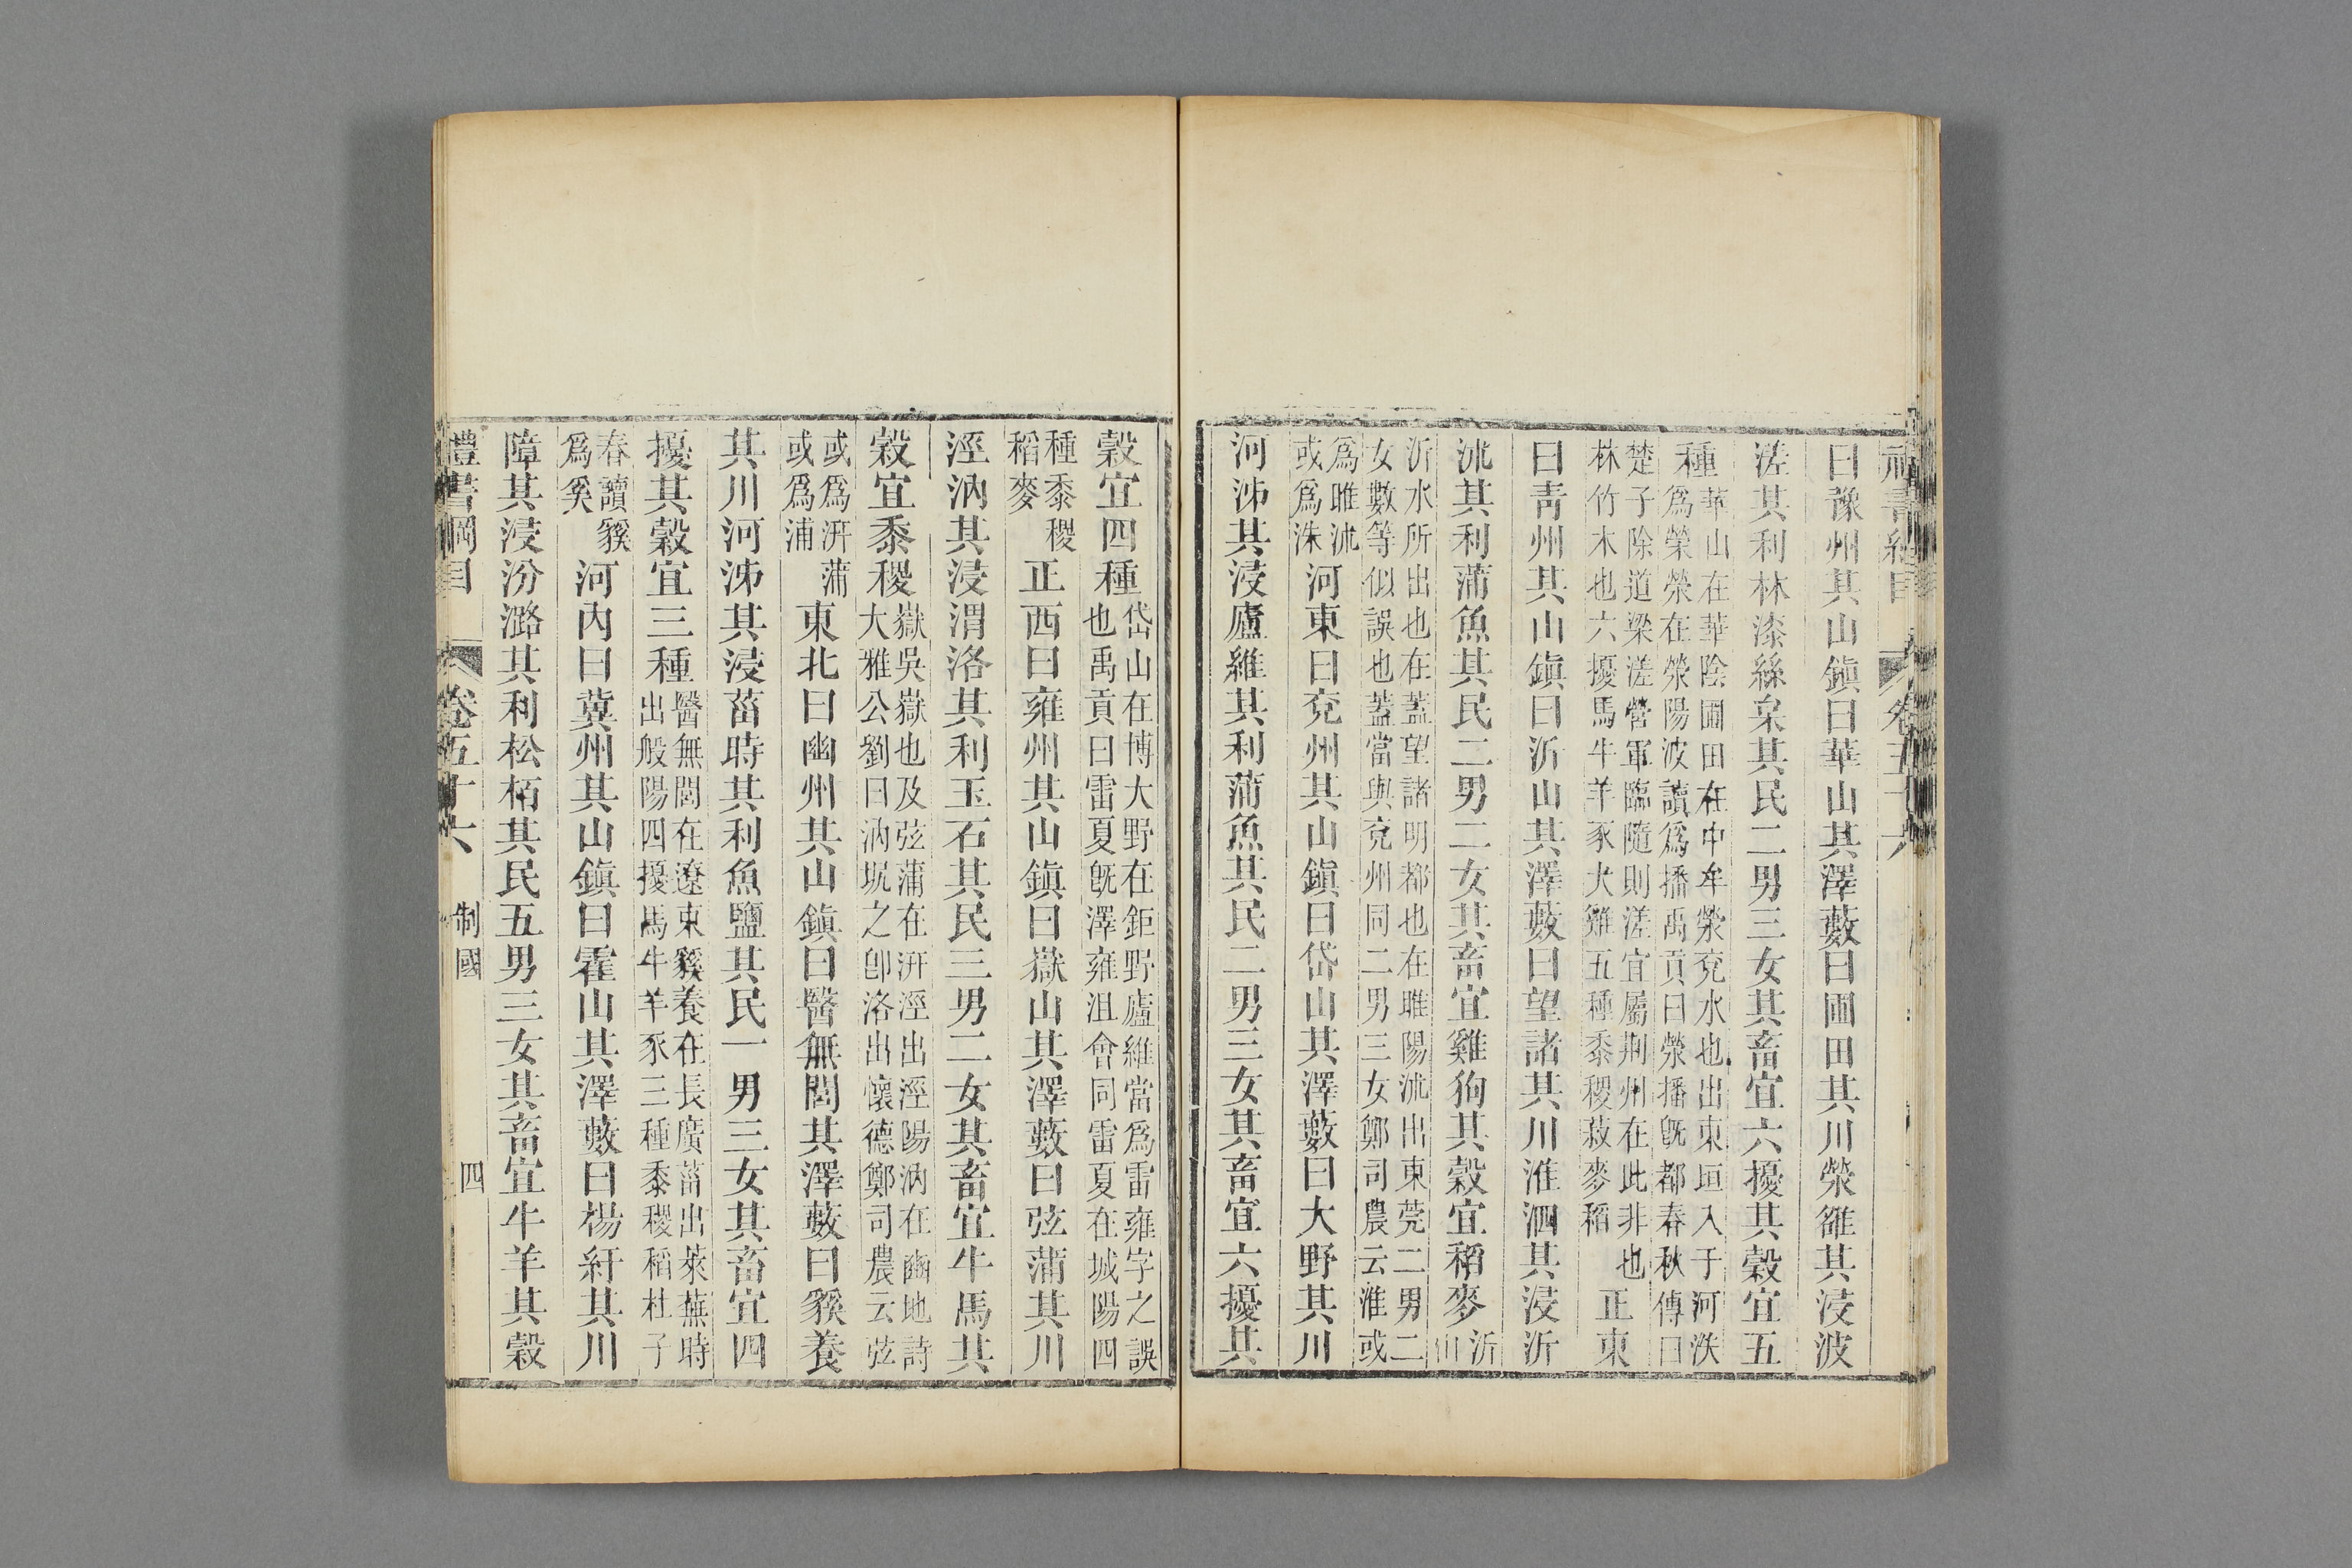 曰豫州其山鎭曰華山其澤藪曰圃田其川滎雒其浸波
溠其利林漆絲枲其民二男三女其畜宜六擾其穀宜五
種華山在華陰圃田在中牟滎兗水也出東垣入于河泆
爲滎滎在滎陽波讀爲播禹貢曰滎播旣都春秋傳曰
楚子除道梁溠營軍臨隨則溠宜屬荆州在此非也
林竹木也六擾馬牛羊豕犬雞五種黍稷菽麥稻
正東
曰靑州其山鎭曰沂山其澤藪曰望諸其川淮泗其浸沂
沭其利蒲魚其民二男二女其畜宜雞狗其穀宜稻麥沂山
沂水所出也在蓋望諸明都也在睢陽沭出東莞二男二
女數等似誤也蓋當與兗州同二男三女鄭司農云淮或
爲睢沭
或爲洙
河東曰兗州其山鎭曰岱山其澤藪曰大野其川
河泲其浸廬維其利蒲魚其民二男三女其畜宜六擾其
穀宜四種岱山在博大野在鉅野廬維當爲雷雍字之誤
也禹貢曰雷夏旣澤雍沮會同雷夏在城陽四
種黍稷
稻麥
正西曰雍州其山鎭曰嶽山其澤藪曰弦蒲其川
涇汭其浸渭洛其利玉石其民三男二女其畜宜牛馬其
穀宜黍稷嶽吳嶽也及弦蒲在汧涇出涇陽汭在豳地詩
大雅公劉曰汭坭之卽洛出懷德鄭司農云弦
或爲汧蒲
或爲浦
東北曰幽州其山鎭曰醫無閭其澤藪曰貕養
其川河泲其浸菑時其利魚鹽其民一男三女其畜宜四
擾其穀宜三種醫無閭在遼東貕養在長廣菑出萊蕪時
出般陽四擾馬牛羊豕三種黍稷稻杜子
春讀貕
爲奚
河內曰冀州其山鎭曰霍山其澤藪曰楊紆其川
障其浸汾潞其利松栢其民五男三女其畜宜牛羊其穀
禮書綱目 卷五十六 制國 四